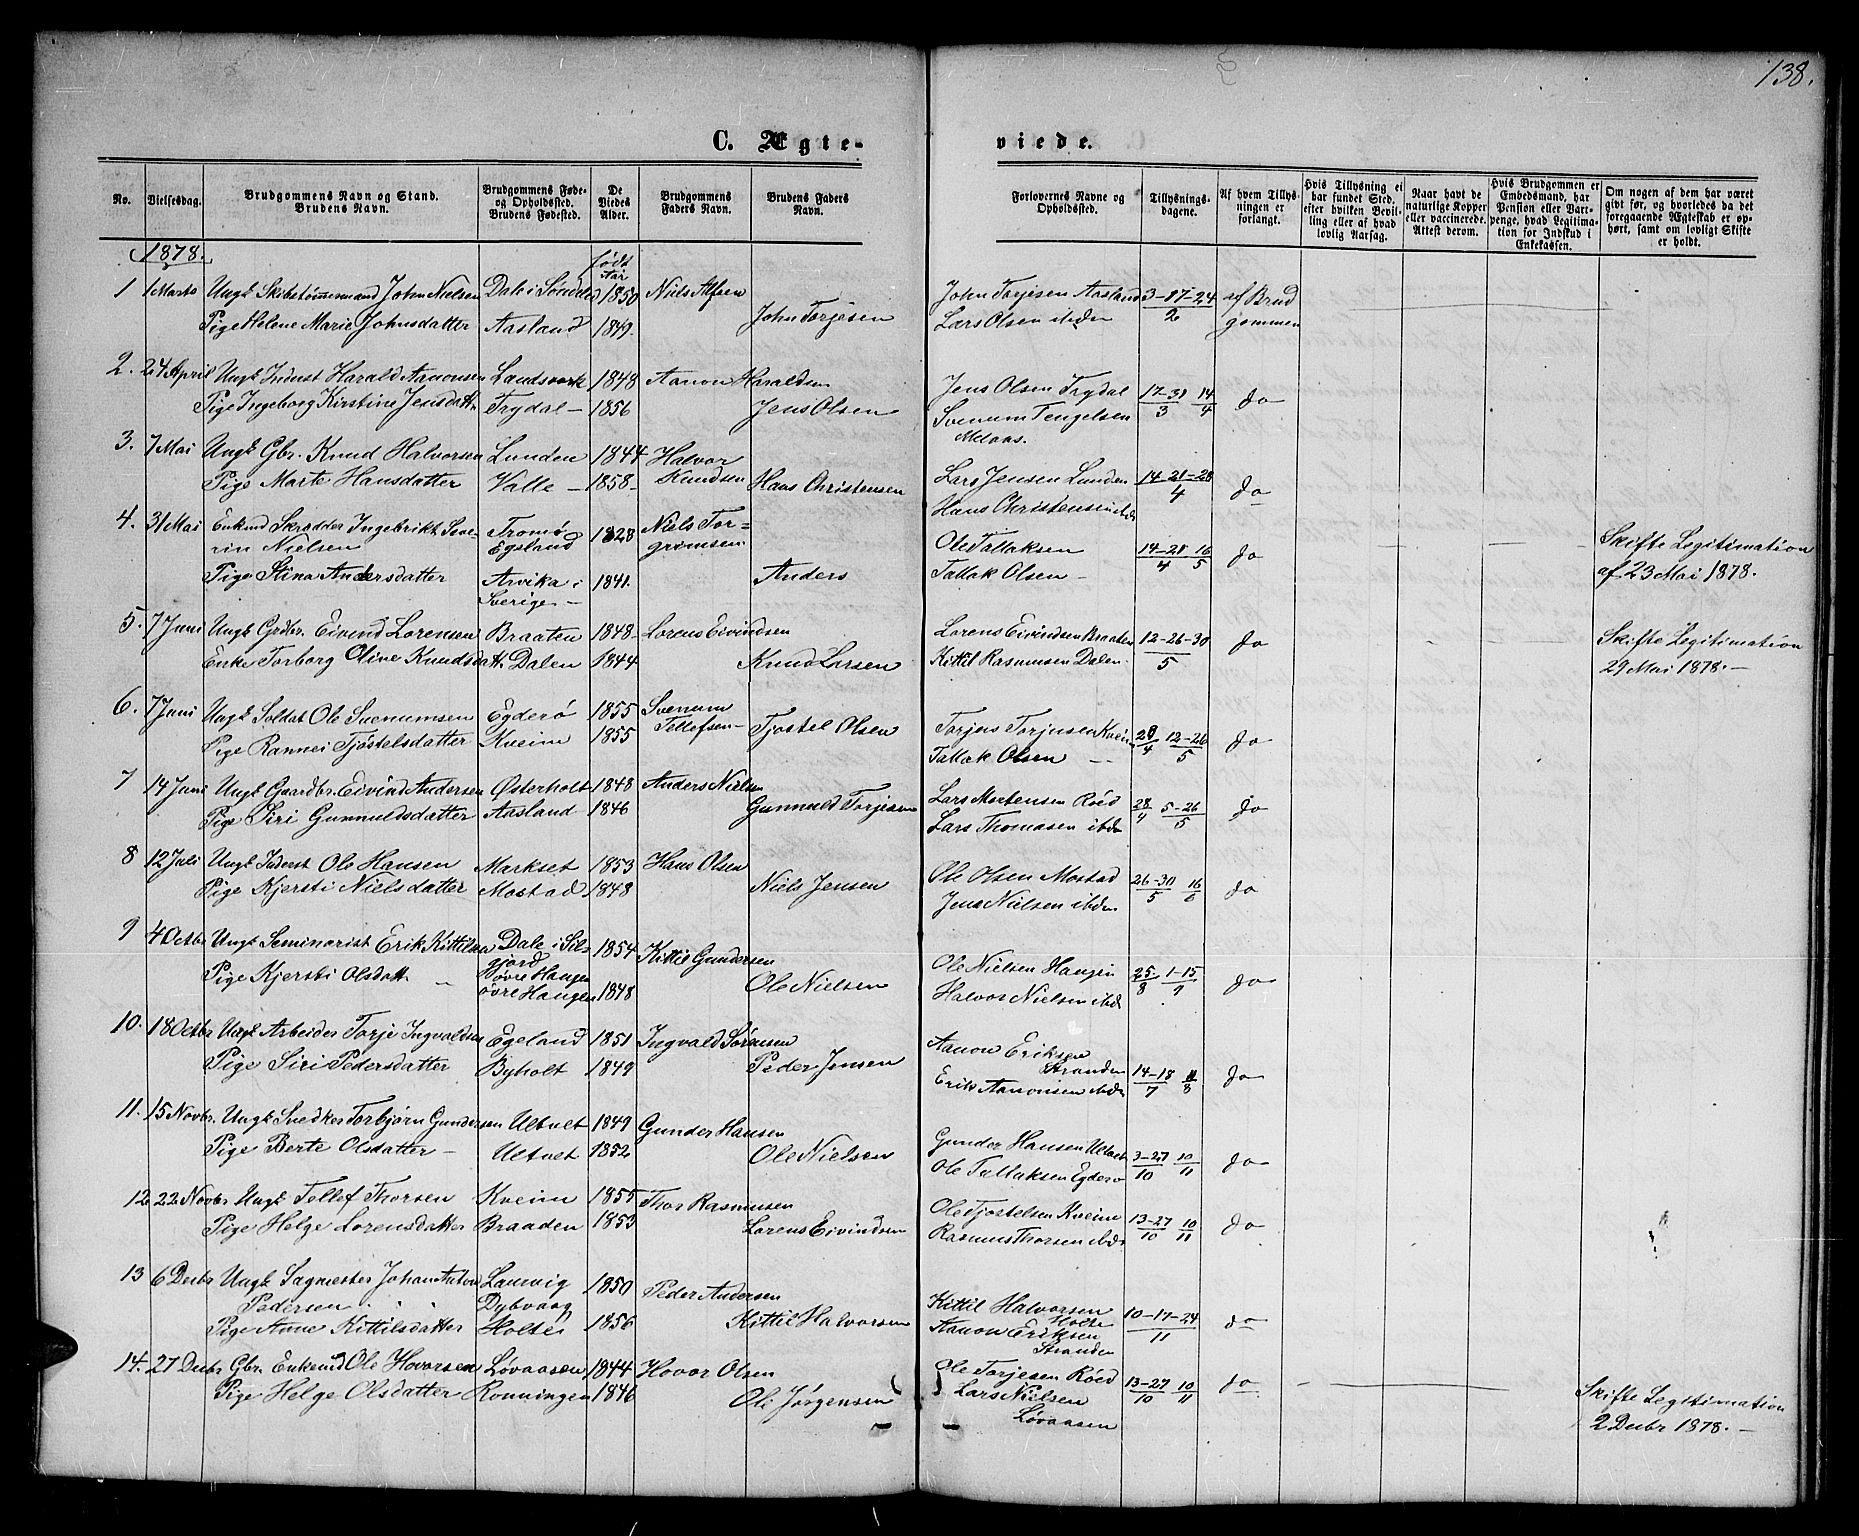 138.
C. Ægte-
viede.
No.
Vielsesdag.
Brudgommens Navn og Stand.
Brudens Navn.
Brudgommens Føde- og Opholdssted.
Brudens Fødested.
De Viedes Alder.
Brudgommens Faders Navn.
Brudens Faders Navn.
Forlovernes Navne og Opholdssted.
Tillysnings-dagene.
Af hvem Tillys-ningen er forlangt.
Hvis Tillysning ei har fundet Sted, efter hvilken Bevil-ling eller af hvad lovlig Aarsag.
Naar havt de naturlige Kopper eller vaccinerede. Attest derom.
Hvis Brudgommen er Embedsmand, har Pension eller Vart-penge, hvad Legitima-tion for Indskud i Enkekassen.
Om nogen af dem har været gift før, og hvorledes da det foregaaende Ægteskab er op-hørt, samt om lovligt Skifte er holdt.
1878.
født Aar
1 1 Marts Ungk Skibstømmermand John Nielsen Dale i Søndeled 1850 Niels Alfsen John Torjesen Aasland 3-17-24/2 af Brud
Pige Helene Marie Johnsdatter Aasland 1849. John Torjesen Lars Olsen ibden gommen
2. 24 April Ungk Inderst Harald Aanonsen Landsverk 1848 Aanon Haraldsen Jens Olsen Trydal 17-31/3 14/4 do
Pige Ingeborg Kirstine Jensdatt. Trydal - 1856 Jens Olsen Svenum Tengelsen
Melaas.
3. 7 Mai Ungk Gbr. Knud Halvorsen Lunden 1844 Halvor Lars Jensen Lunden 14-21-28/4 do
Pige Marte Hansdatter Valle - 1858- Knudsen Hans Christensen Hans Christensen ibd
4. 31 Mai Enkmd Skrædder Ingebrikt Seve- Tromø 1828 Niels Tor= Ole Tallaksen 14-28/4 16/5 do Skifte Legitimation
rin Nielsen Egsland grimsen Tallak Olsen - af 23 Mai 1878.
Pige Stina Andersdatter Arvika i 1841. Anders
Sverige -
5. 7 Juni Ungk Grdbr. Eivind Lorensen Braaten 1848- Lorens Eivindsen Lorens Eivindsen Braaten 12-26-30/5 do Skifte Legitimation
Enke Torborg Oline Knudsdatt. Dalen 1844 Knud Larsen Kittil Rasmusen Dalen. 29 Mai 1878. -
6. 7 Juni Ungk Soldat Ole Svenumsen Egderø 1855 Svenum Torjus Torjusen Kveim 28/4 12-26/5 do
Pige Rannei Tjøstelsdatter Kveim 1855 Tellefsen - Tjostel Olsen Tallak Olsen -
7 14 Juni Ungk Gaardbr. Eivind Andersen Østerholt 1848 Anders Nielsen Lars Mortensen Röed 28/4 5-26/5 do
Pige Siri Gunnuldsdatter Aasland 1846 Gunnuld Torjesen Lars Thomasen ibden
8 12 Juli Ungk Inderst Ole Hansen Markset 1853 Hans Olsen Ole Olsen Mostad 26-30/5 16/6 do
Pige Kjersti Nielsdatter Mostad 1848 Niels Jensen Jens Nielsen ibden
9 4 Octbr Ungk Seminarist Erik Kittilsen Dale i Sil- 1854 Kittil Gundersen Ole Nielsen Haugen 25/8 1-15/9 do
gjord Halvor Nielsen ibd
Pige Kjersti Olsdatt. øvre Haugen
øvre Haugen 1848 Ole Nielsen
10. 18 Octbr Ungk Arbeider Torje Ingvaldsen Egeland 1851 Ingvald Sørensen Aanon Eriksen
Stranden 14-18/7 11/8 do
Pige Siri Pedersdatter Byholt 1849 Peder Jensen Erik Aanonsen ibd
11. 15 Novbr. Ungk Snedker Torbjørn Gundersen Ultvet 1849 Gunder Hansen Gunder Hansen Ultvet 3-27/10 10/11 do
Pige Berte Olsdatter - Ultvet 1852 Ole Nielsen Ole Tallaksen Egderø
12 22 Novbr Ungk Tellef Thorsen Kveim 1855 Thor Rasmusen Ole Tjostelsen Kveim 13-27/10 10/11 do
Pige Helge Lorensdatter Braaden 1853 Lorens Eivindsen Rasmus Thorsen ibd
13 6 Decbr Ungk Sagmester Johan Anton Laurvig 1850 Peder Andersen Kittil Halvorsen
Pedersen Dybvaag Holte 10-17-24/11 do
Pige Anne Kittilsdatter Holte 1856 Kittil Halvorsen Aanon Eriksen
Stranden
14. 27 Decbr Gbr. Enkemd Ole Hovorsen Løvaasen 1844 Hovor Olsen Ole Torjesen Röed 13-27/10 10/11 do Skifte Legitimation
Pige Helge Olsdatter Rønningen 1846 Ole Jørgensen Lars Nielsen 2 Decbr 1878. -
Løvaasen